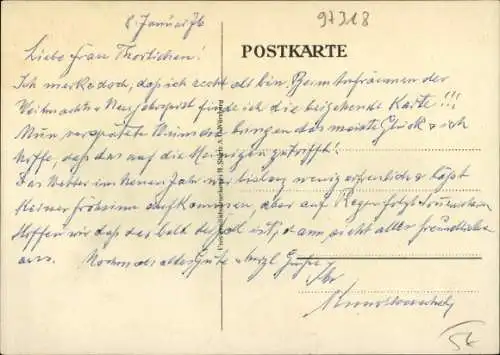 8. Januar 76
97318
POSTKARTE
Liebe Frau
Ich merke doch, daß ich recht alt bin. Beim Aufräumen der
Weihnachts- u. Neujahrspost finde ich die beigehende Karte!!!
Nun, verspätete Wünsche bringen das meiste Glück u. ich
hoffe, daß das auf die Meinigen zutrifft!
Das Wetter im Neuen Jahr war bislang wenig erfreulich u. läßt
keinen Frohsinn aufkommen, aber auf Regen folgt Sonnenschein
Hoffen wir, daß das bald der Fall ist, dann sieht alles freundlicher
aus. Nochmals alles Gute u. herzl. Grüße
Ihr